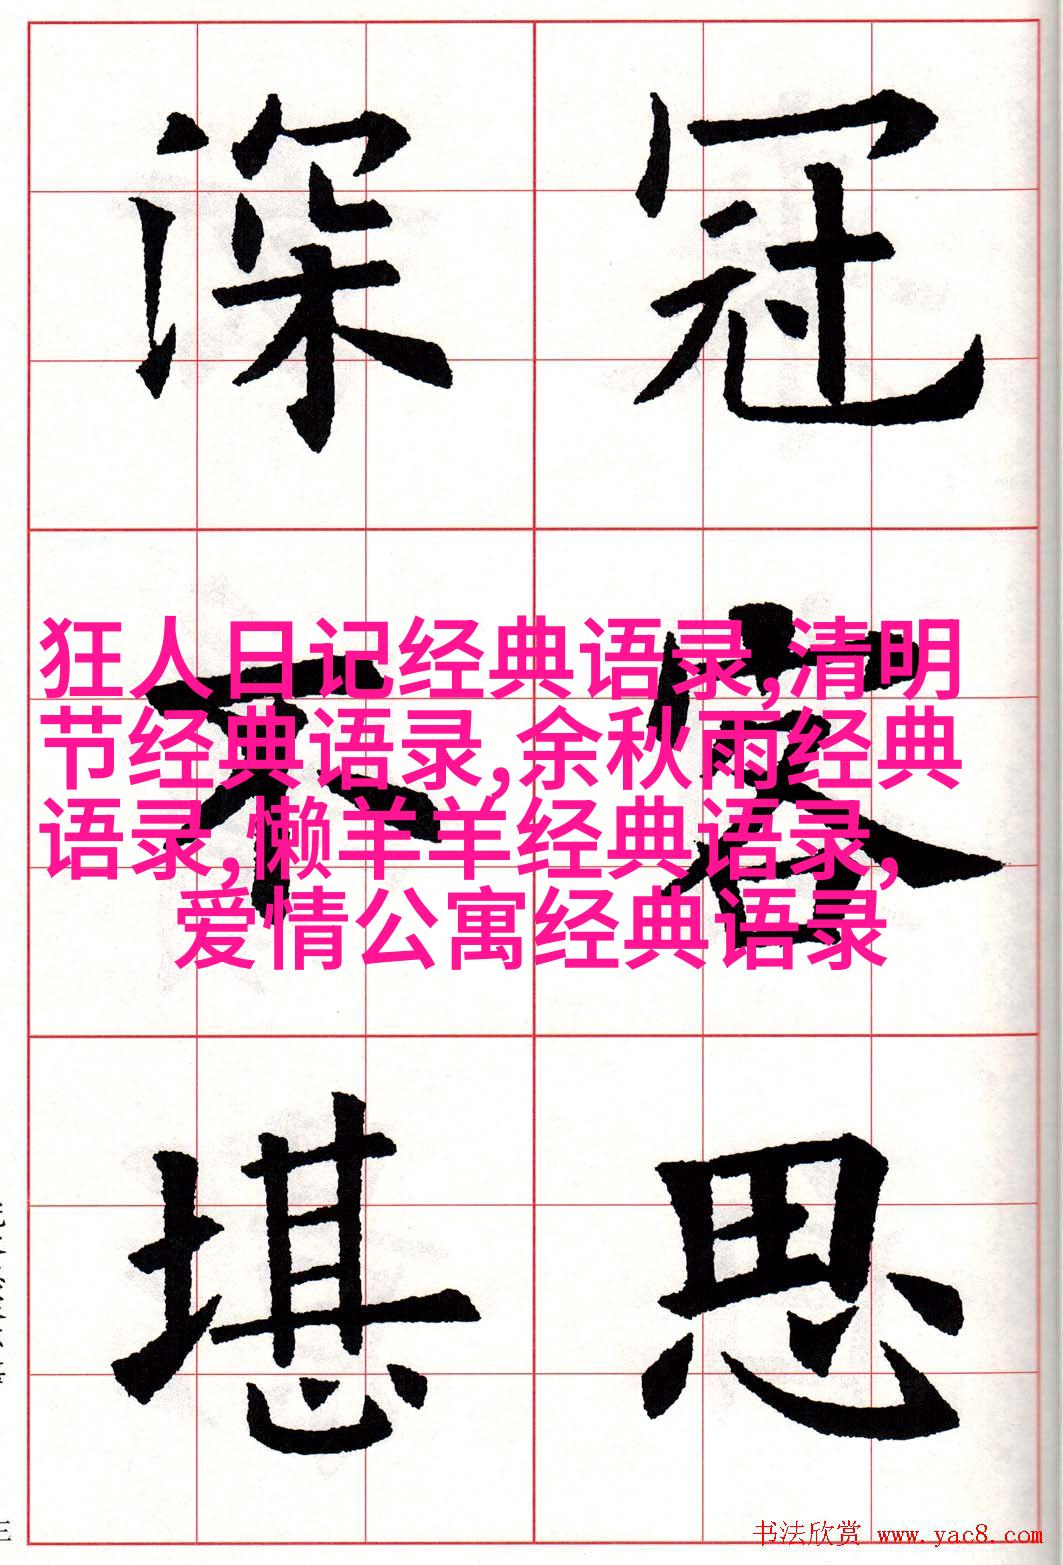 冠客思
深不堪
狂人日记经典语录,清明
节经典语录,余秋雨经典
语录,懒羊羊经典语录,
爱情公寓经典语录
三
书法欣赏 www.yac8.com